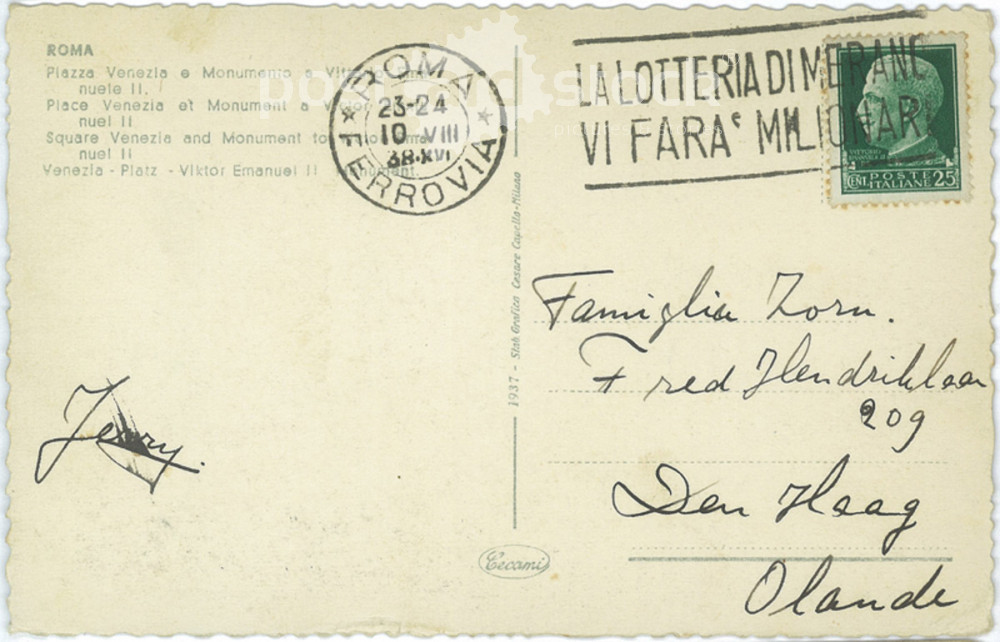 ROMA
Piazza Venezia e Monumento a
nuele II.
Place Venezia et Monument a Victor
nuel II
Square Venezia and Monument to
nuel II
Venezia - Platz - Viktor Emanuel II Monument.
ROMA
23-24
10 VIII
38.XVI
FERROVIA
LA LOTTERIA DI MERANO
VI FARA' MILIONARI
CENT. POSTE ITALIANE 25
1937 - Stab. Grafico Cesare Capello-Milano
Famiglia Zorn.
Fred Hendriklaan
209
Den Haag
Olande
Jerry.
Cecami